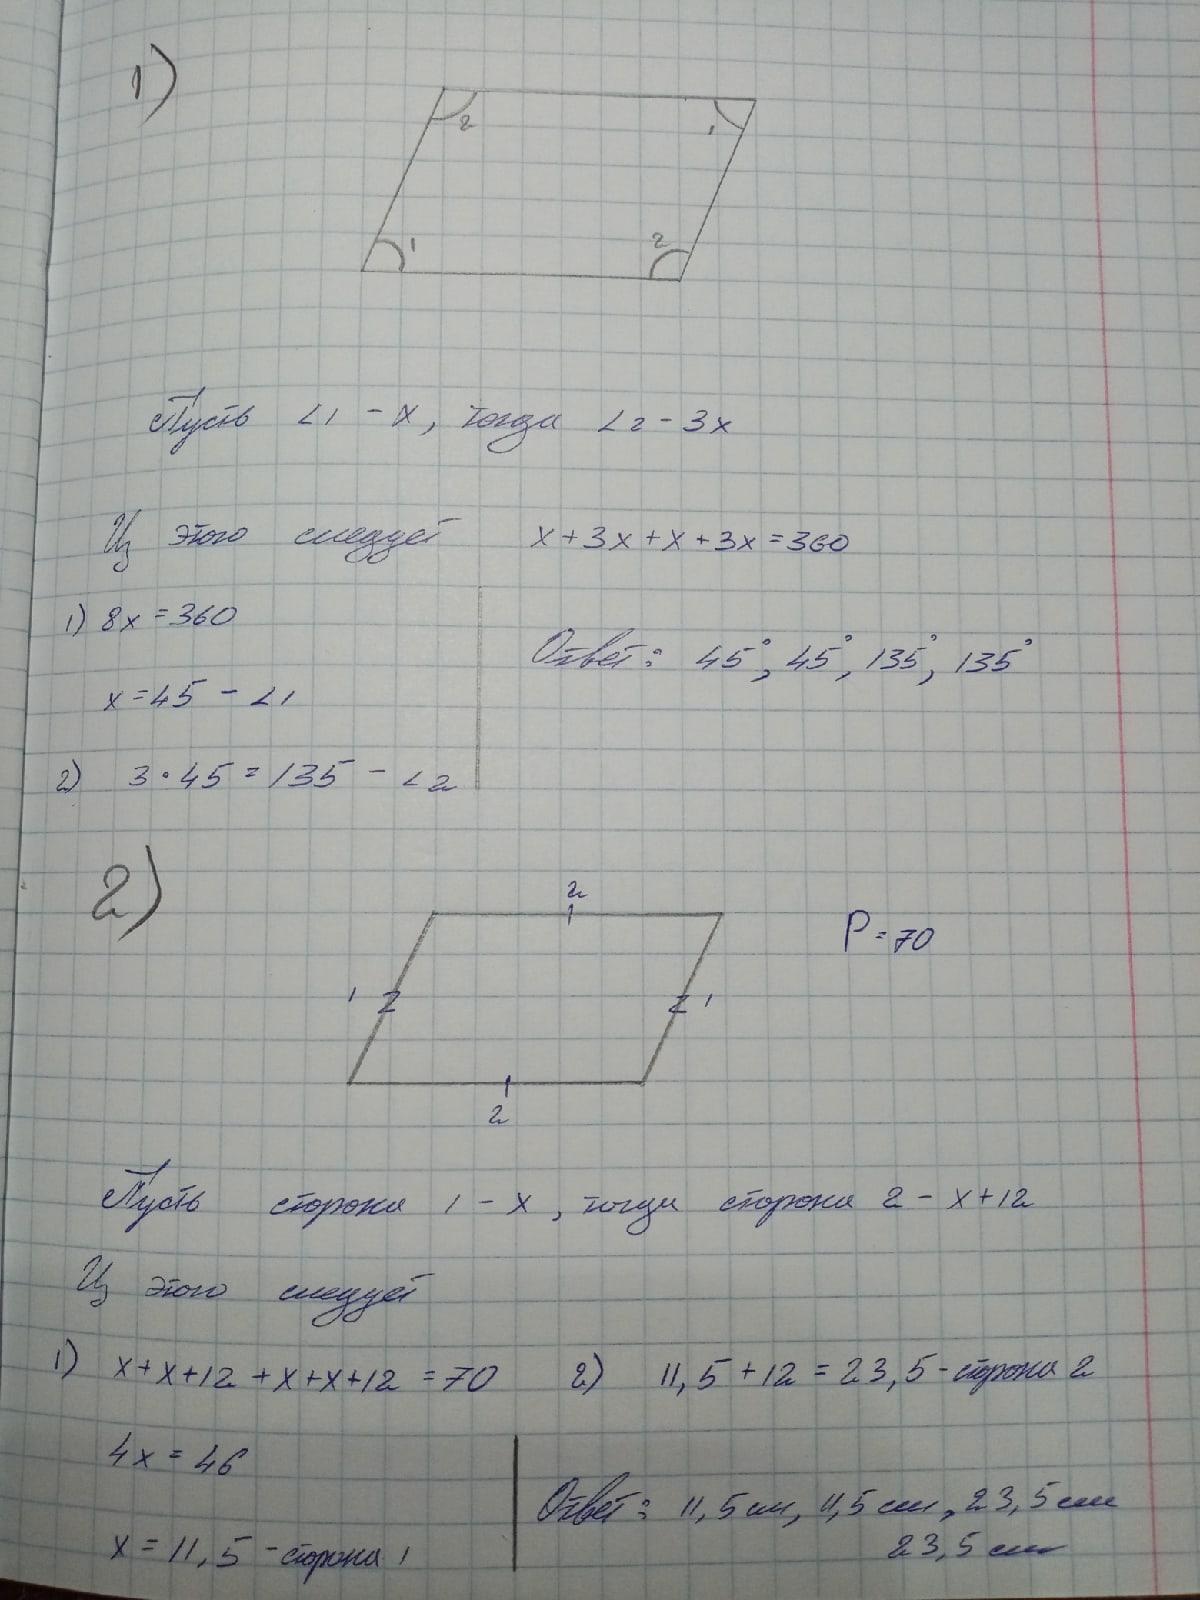 1)
2
1
1
2
Пусть ∠1 - x, тогда ∠2 - 3x
Из этого следует x + 3x + x + 3x = 360
1) 8x = 360
Ответ: 45°, 45°, 135°, 135°
x = 45 - ∠1
2) 3 · 45 = 135 - ∠2
2)
2
P = 70
1
1
2
Пусть сторона 1 - x, тогда сторона 2 - x + 12
Из этого следует
1) x + x + 12 + x + x + 12 = 70
2) 11,5 + 12 = 23,5 - сторона 2
4x = 46
x = 11,5 - сторона 1
Ответ: 11,5 см, 11,5 см, 23,5 см
23,5 см